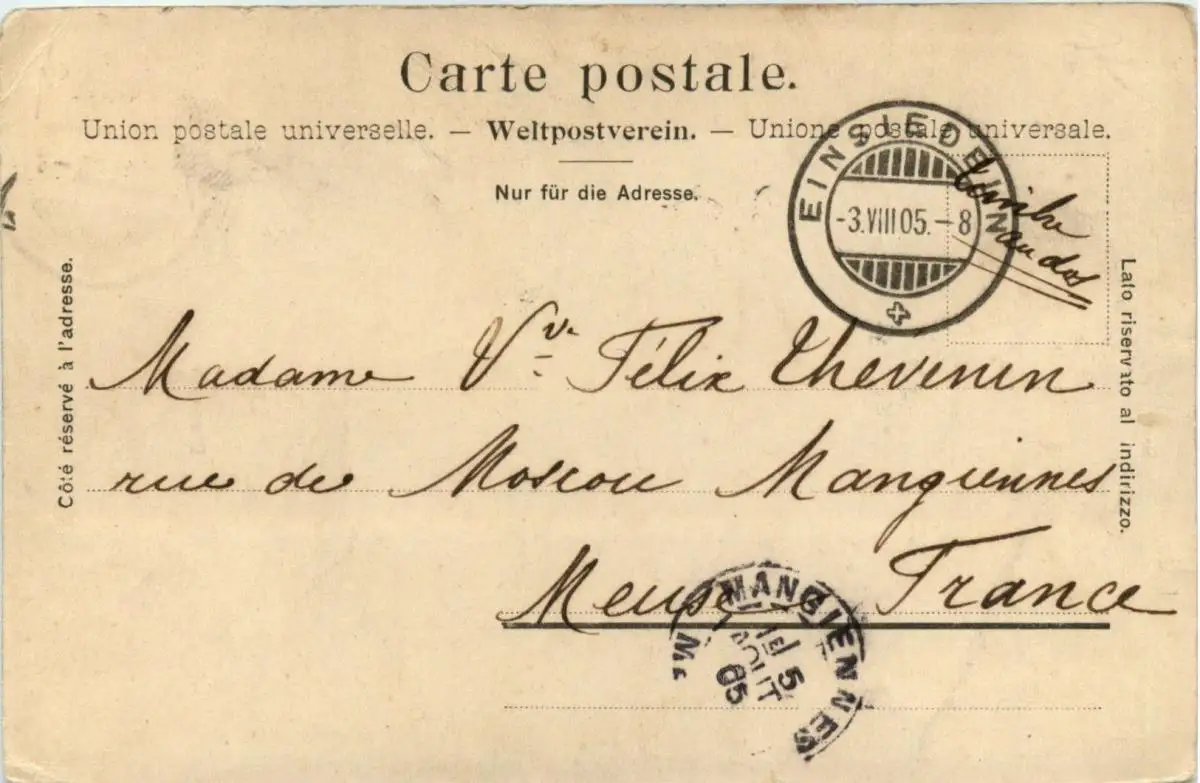 Carte postale.
Union postale universelle. — Weltpostverein. — Unione postale universale.
Nur für die Adresse.
EINSIEDELN
-3.VIII 05.-8
timbre
au dos
Côté réservé à l'adresse.
Lato riservato al indirizzo.
Madame Vve Félix Thevenin
rue de Moscou Mangiennes
Meuse France
MANGIENNES
5
AOUT
05